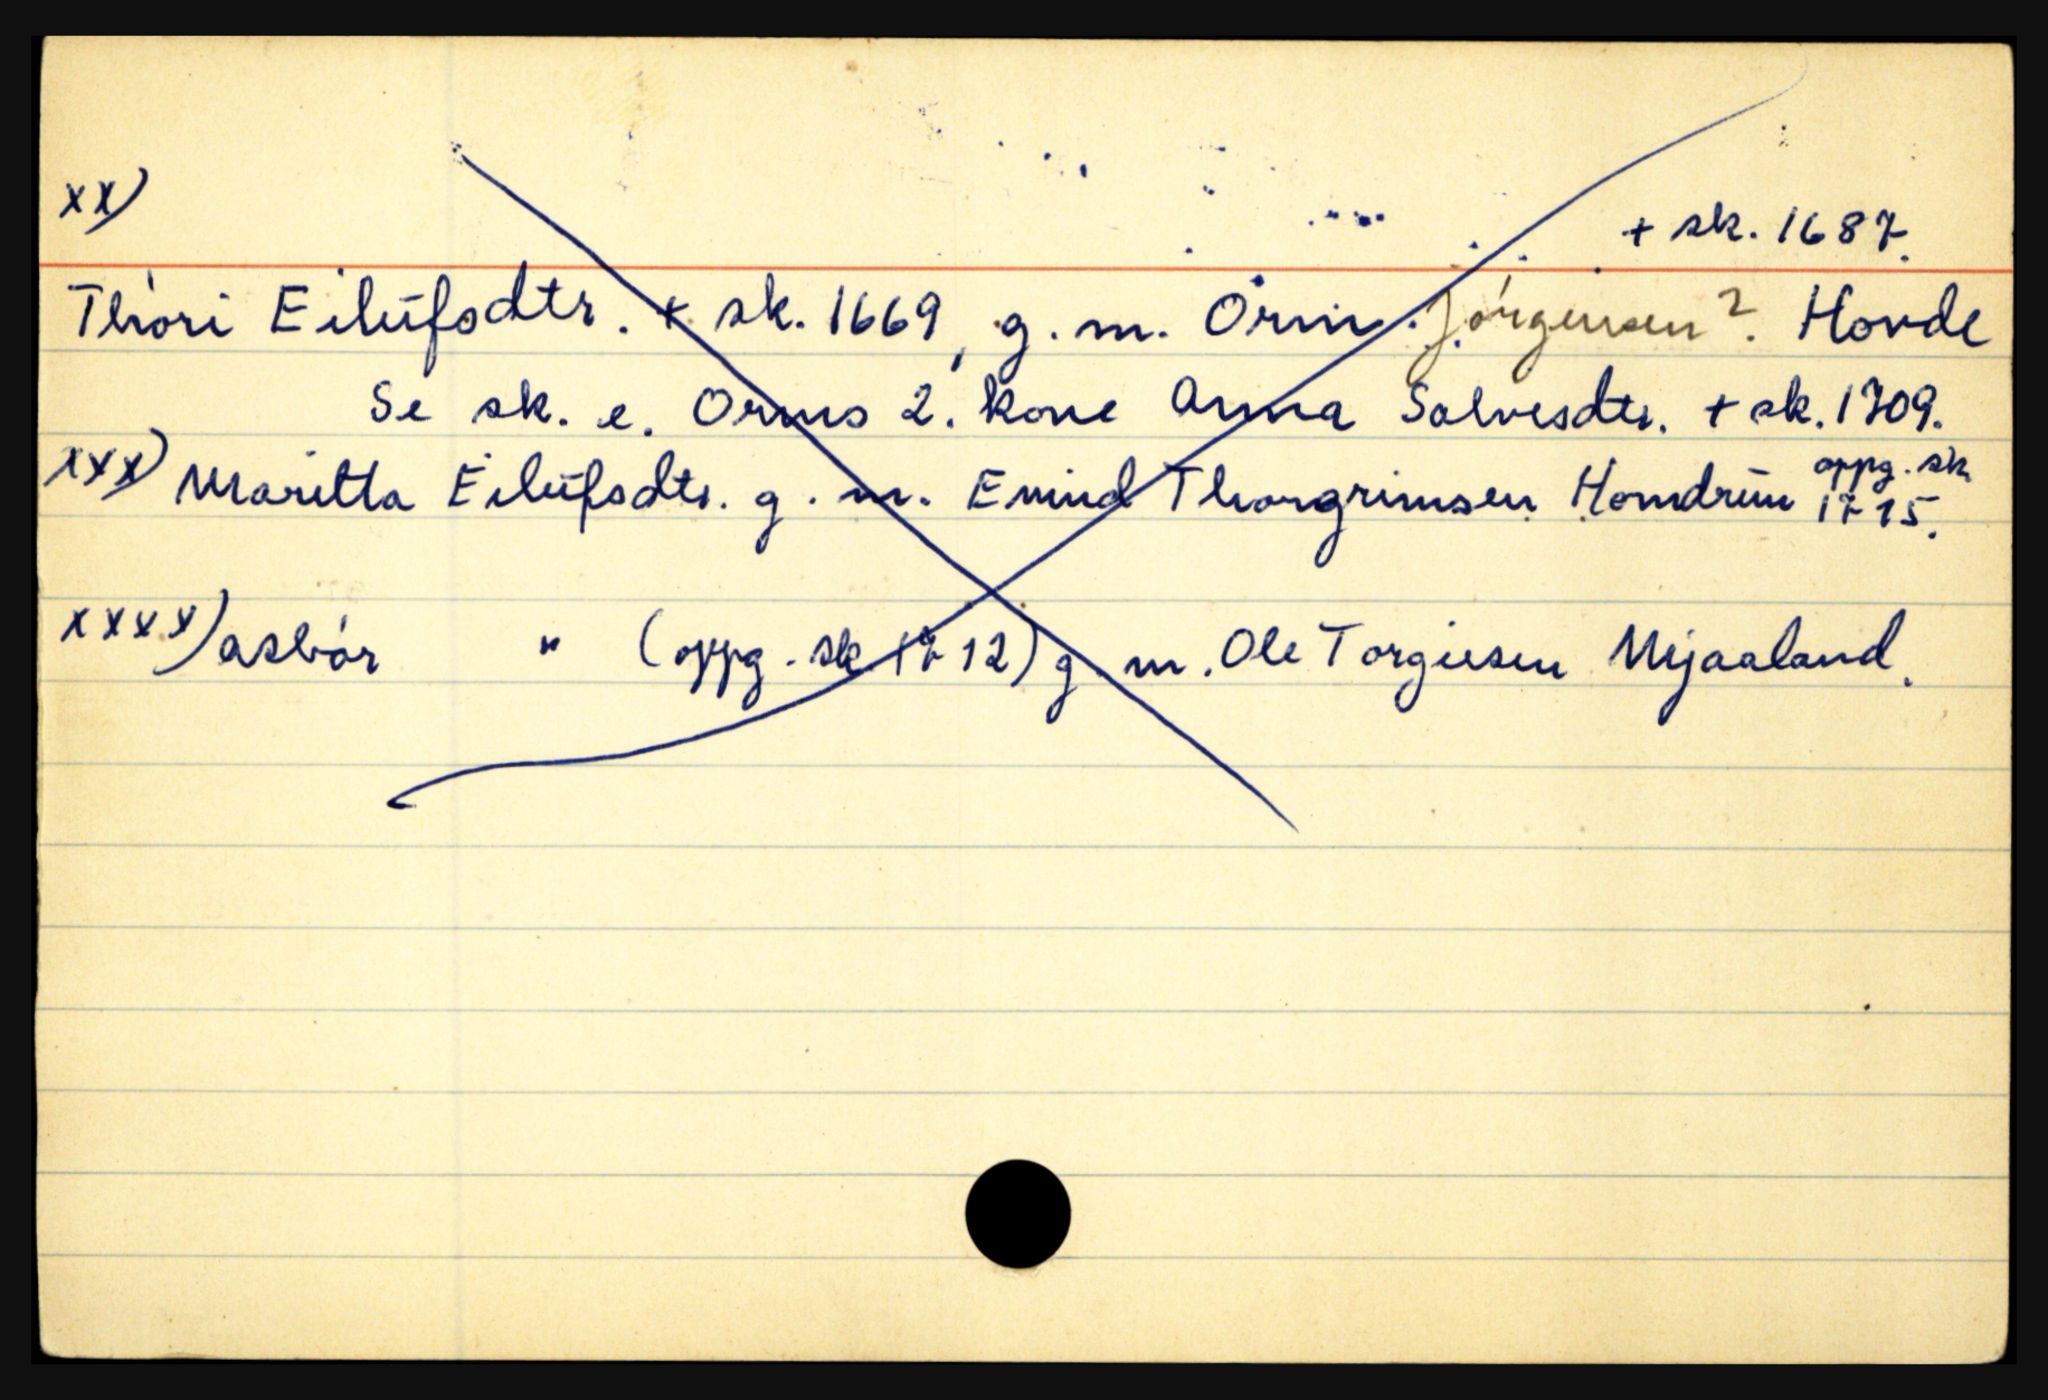 xx)
+ sk. 1687.
Thori Eilúfsdtr. + sk. 1669, g. m. Orm Jörgensen ?. Hovde
Se sk. e. Orms 2. kone Anna Salvesdtr. + sk. 1709.
xxx) Maritta Eilúfsdtr. g. m. Enind Thorgrimsen Homdrúm oppg. sk. 1715.
xxxx) Asbór " (oppg. sk 1712) g. m. Ole Torgiesen Mjaaland.